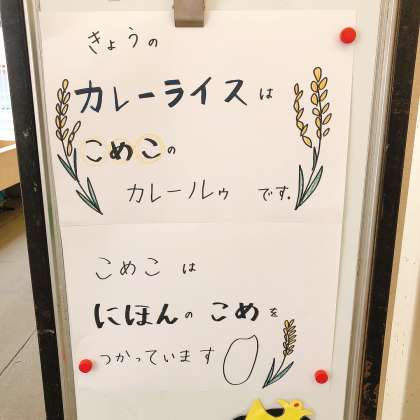 きょうの
カレーライスは
こめこの
カレールゥ です。
こめこ は
にほんの こめを
つかっています